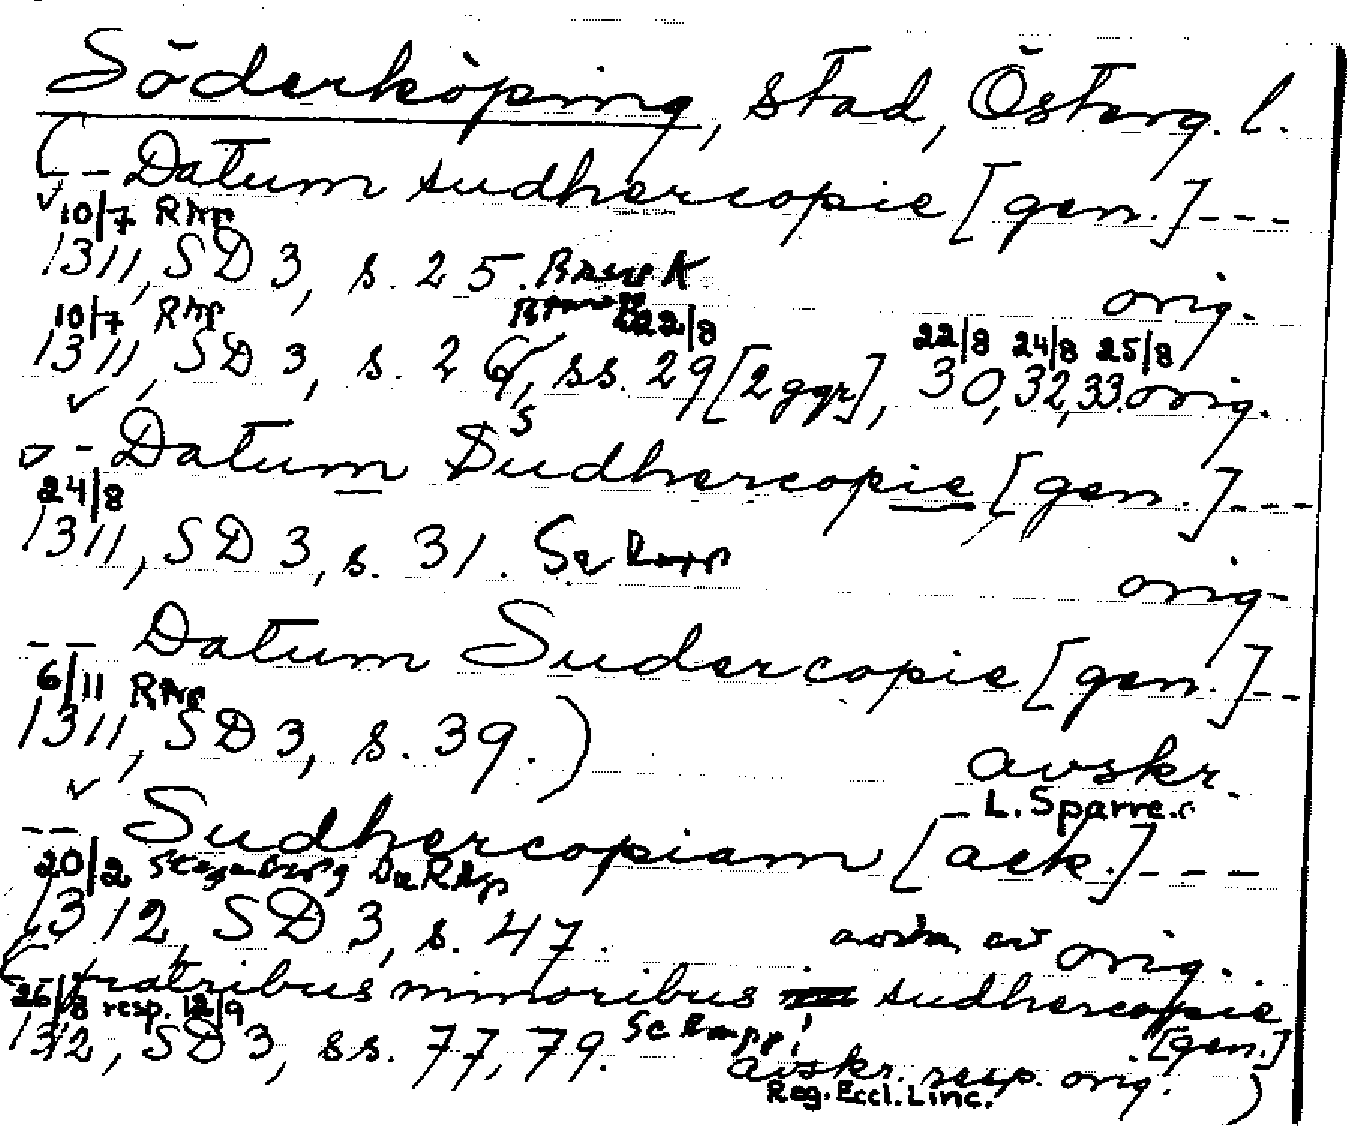 Söderköping, stad, Österg. l.
(-- Datum sudhercopie [gen.] ----
10/7 Rhp
1311, SD 3, s. 25. orig.
10/7 Rhp 22/8 22/8 24/8 25/8
1311, SD 3, s. 26, ss. 29 [2 ggr], 30, 32, 33. orig.
-- Datum Sudhercopie [gen.] ---
24/8
1311, SD 3, s. 31. Se Rapp
orig.
-- Datum Sudercopie [gen.] --
6/11 Rhp
1311, SD 3, s. 39.)
avskr.
L. Sparre.
-- Sudhercopiam [ack.] ----
20/2 Stegeborg Du Rhp
1312, SD 3, s. 47. avskr. av orig.
(- fratribus minoribus sudhercopie
26/8 resp. 12/9 [gen.]
1312, SD 3, ss. 77, 79. Se Rapp!
avskr. resp. orig. )
Reg. Eccl. Linc.